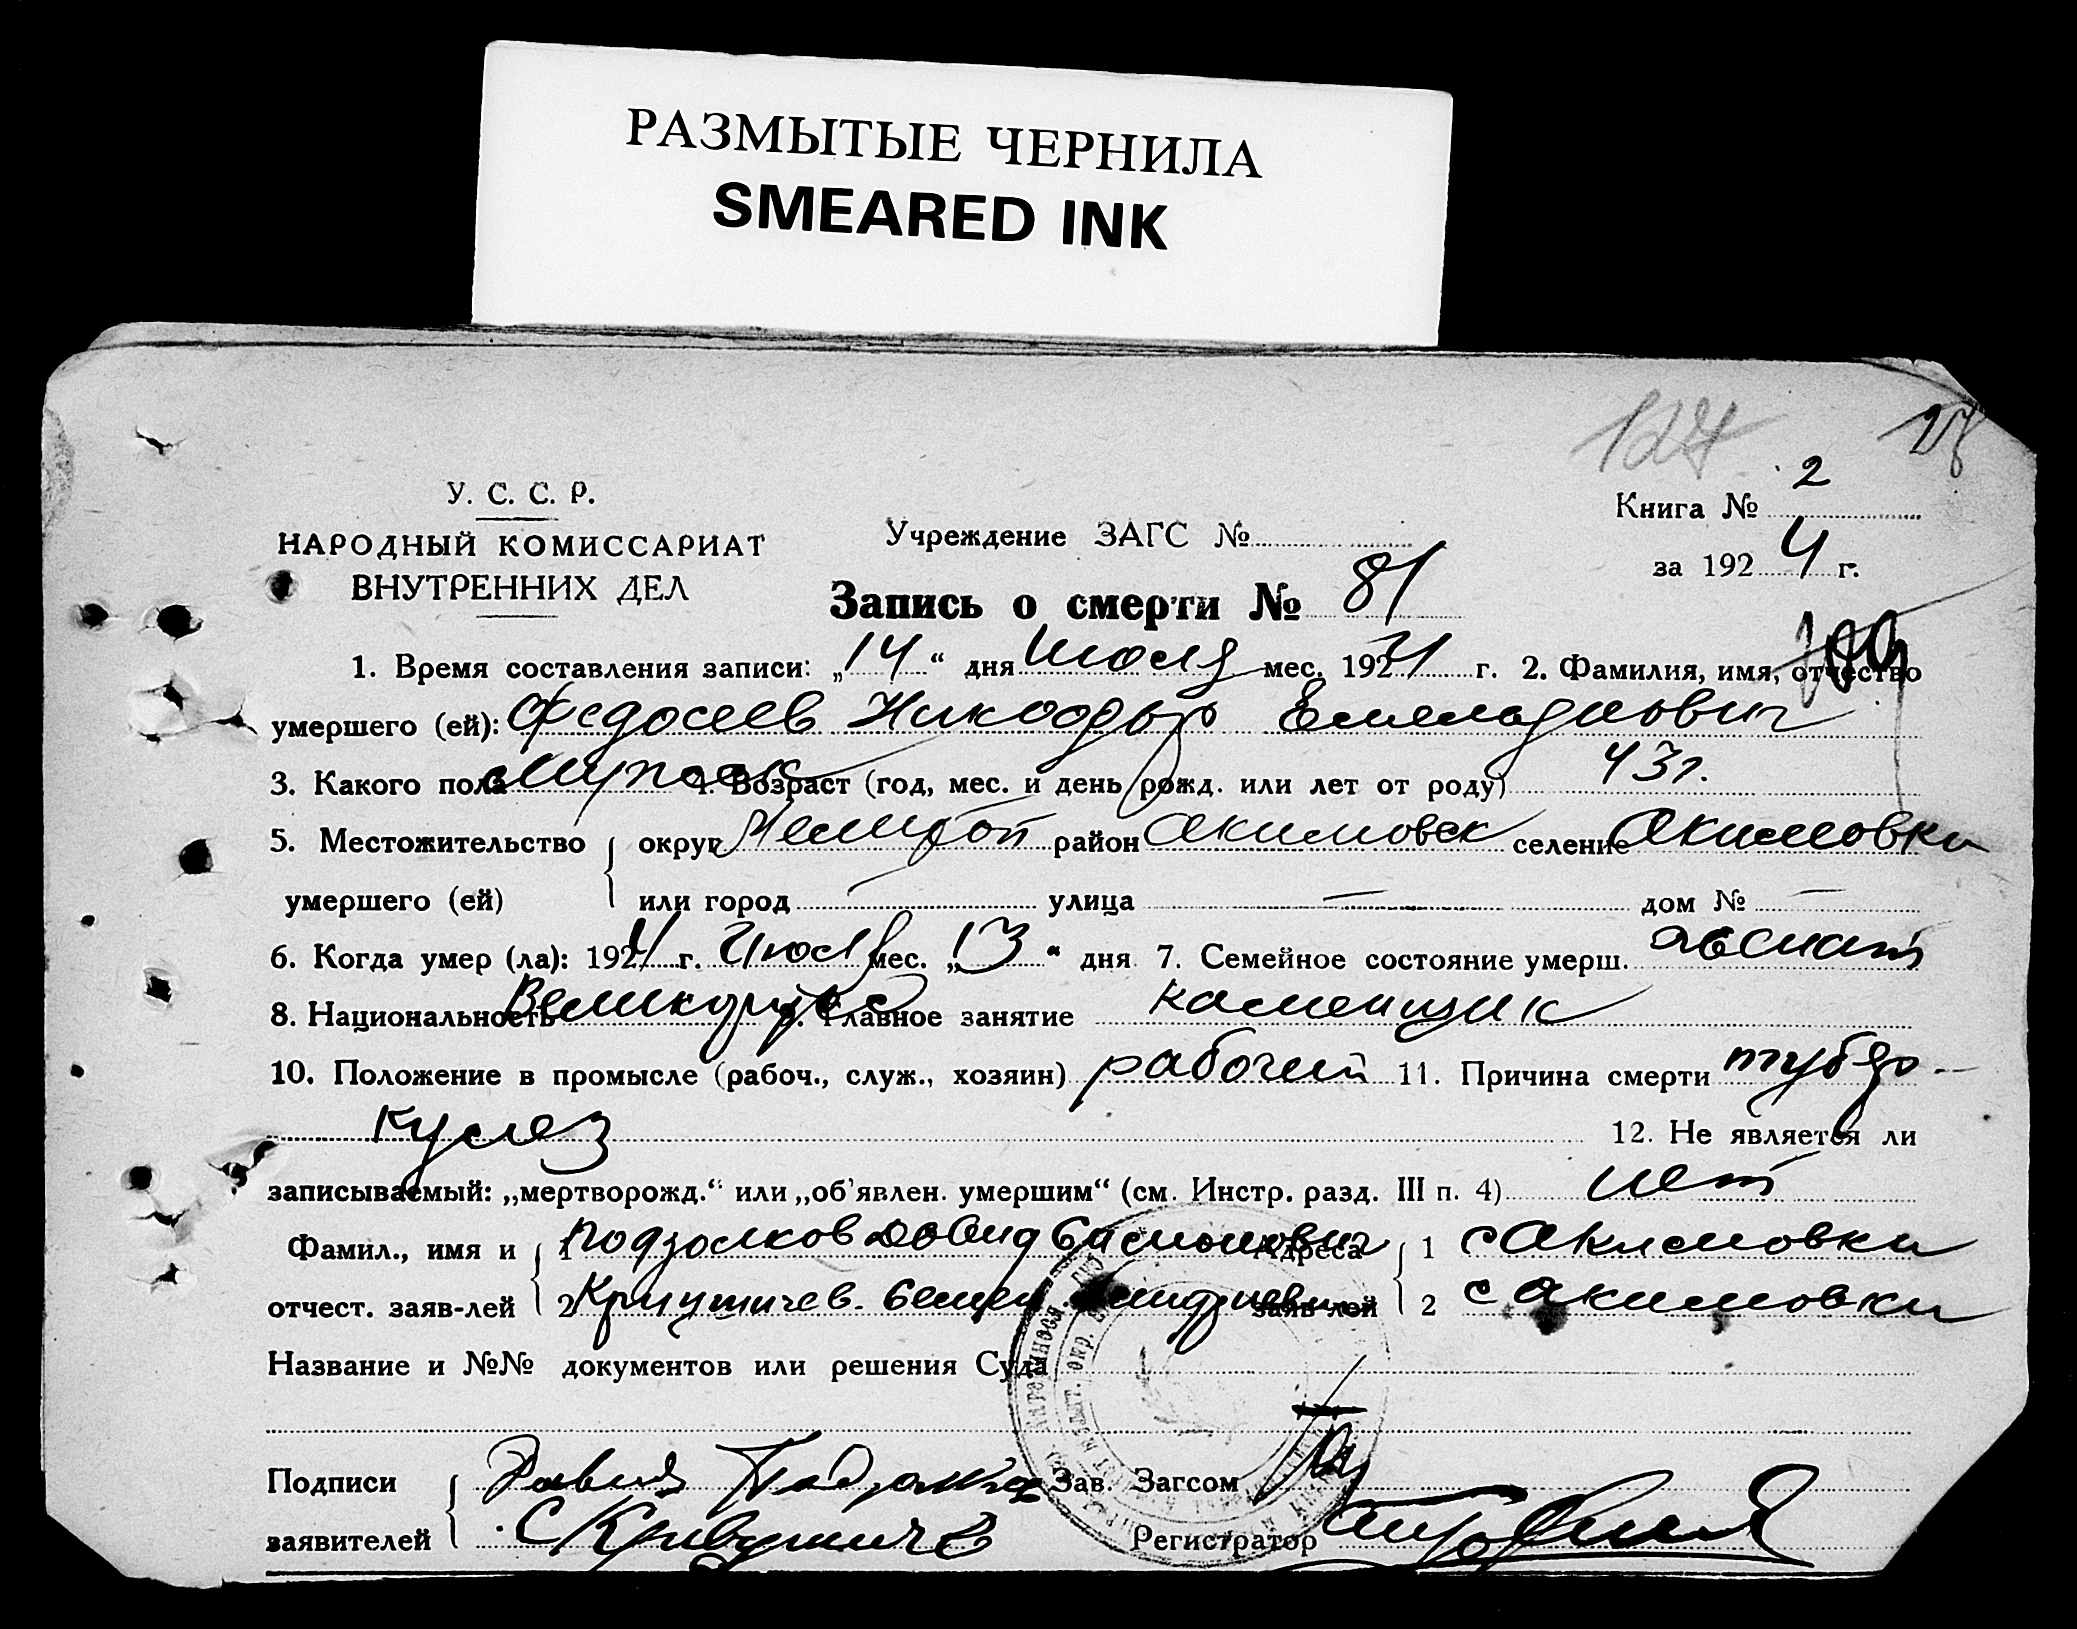 РАЗМЫТЫЕ ЧЕРНИЛА
SMEARED INK
127
У. С. С. Р.
НАРОДНЫЙ КОМИССАРИАТ
ВНУТРЕННИХ ДЕЛ
Учреждение ЗАГС №
Книга № 2
за 1924 г.
Запись о смерти № 81
1. Время составления записи: „14“ дня Июля мес. 1924 г. 2. Фамилия, имя, отчество
умершего (ей): Федосеев Никофор Емельянович
3. Какого пола Мужск 4. Возраст (год, мес. и день рожд. или лет от роду) 43 г.
5. Местожительство округ Мелитоп район Акимовск селение Акимовки
умершего (ей) или город — улица — дом № —
6. Когда умер (ла): 1924 г. Июля мес. „13“ дня 7. Семейное состояние умерш. женат
8. Национальность Великорус 9. Главное занятие каменщик
10. Положение в промысле (рабоч., служ., хозяин) рабочий 11. Причина смерти тубер-
кулез 12. Не является ли
записываемый: „мертворожд.“ или „об'явлен. умершим“ (см. Инстр. разд. III п. 4) нет
Фамил., имя и 1 Подзолков Давид Адреса 1 с Акимовки
отчест. заяв-лей 2 Семен заяв-лей 2 с Акимовки
Название и №№ документов или решения Суда
Подписи Давид Зав. Загсом
заявителей С Регистратор